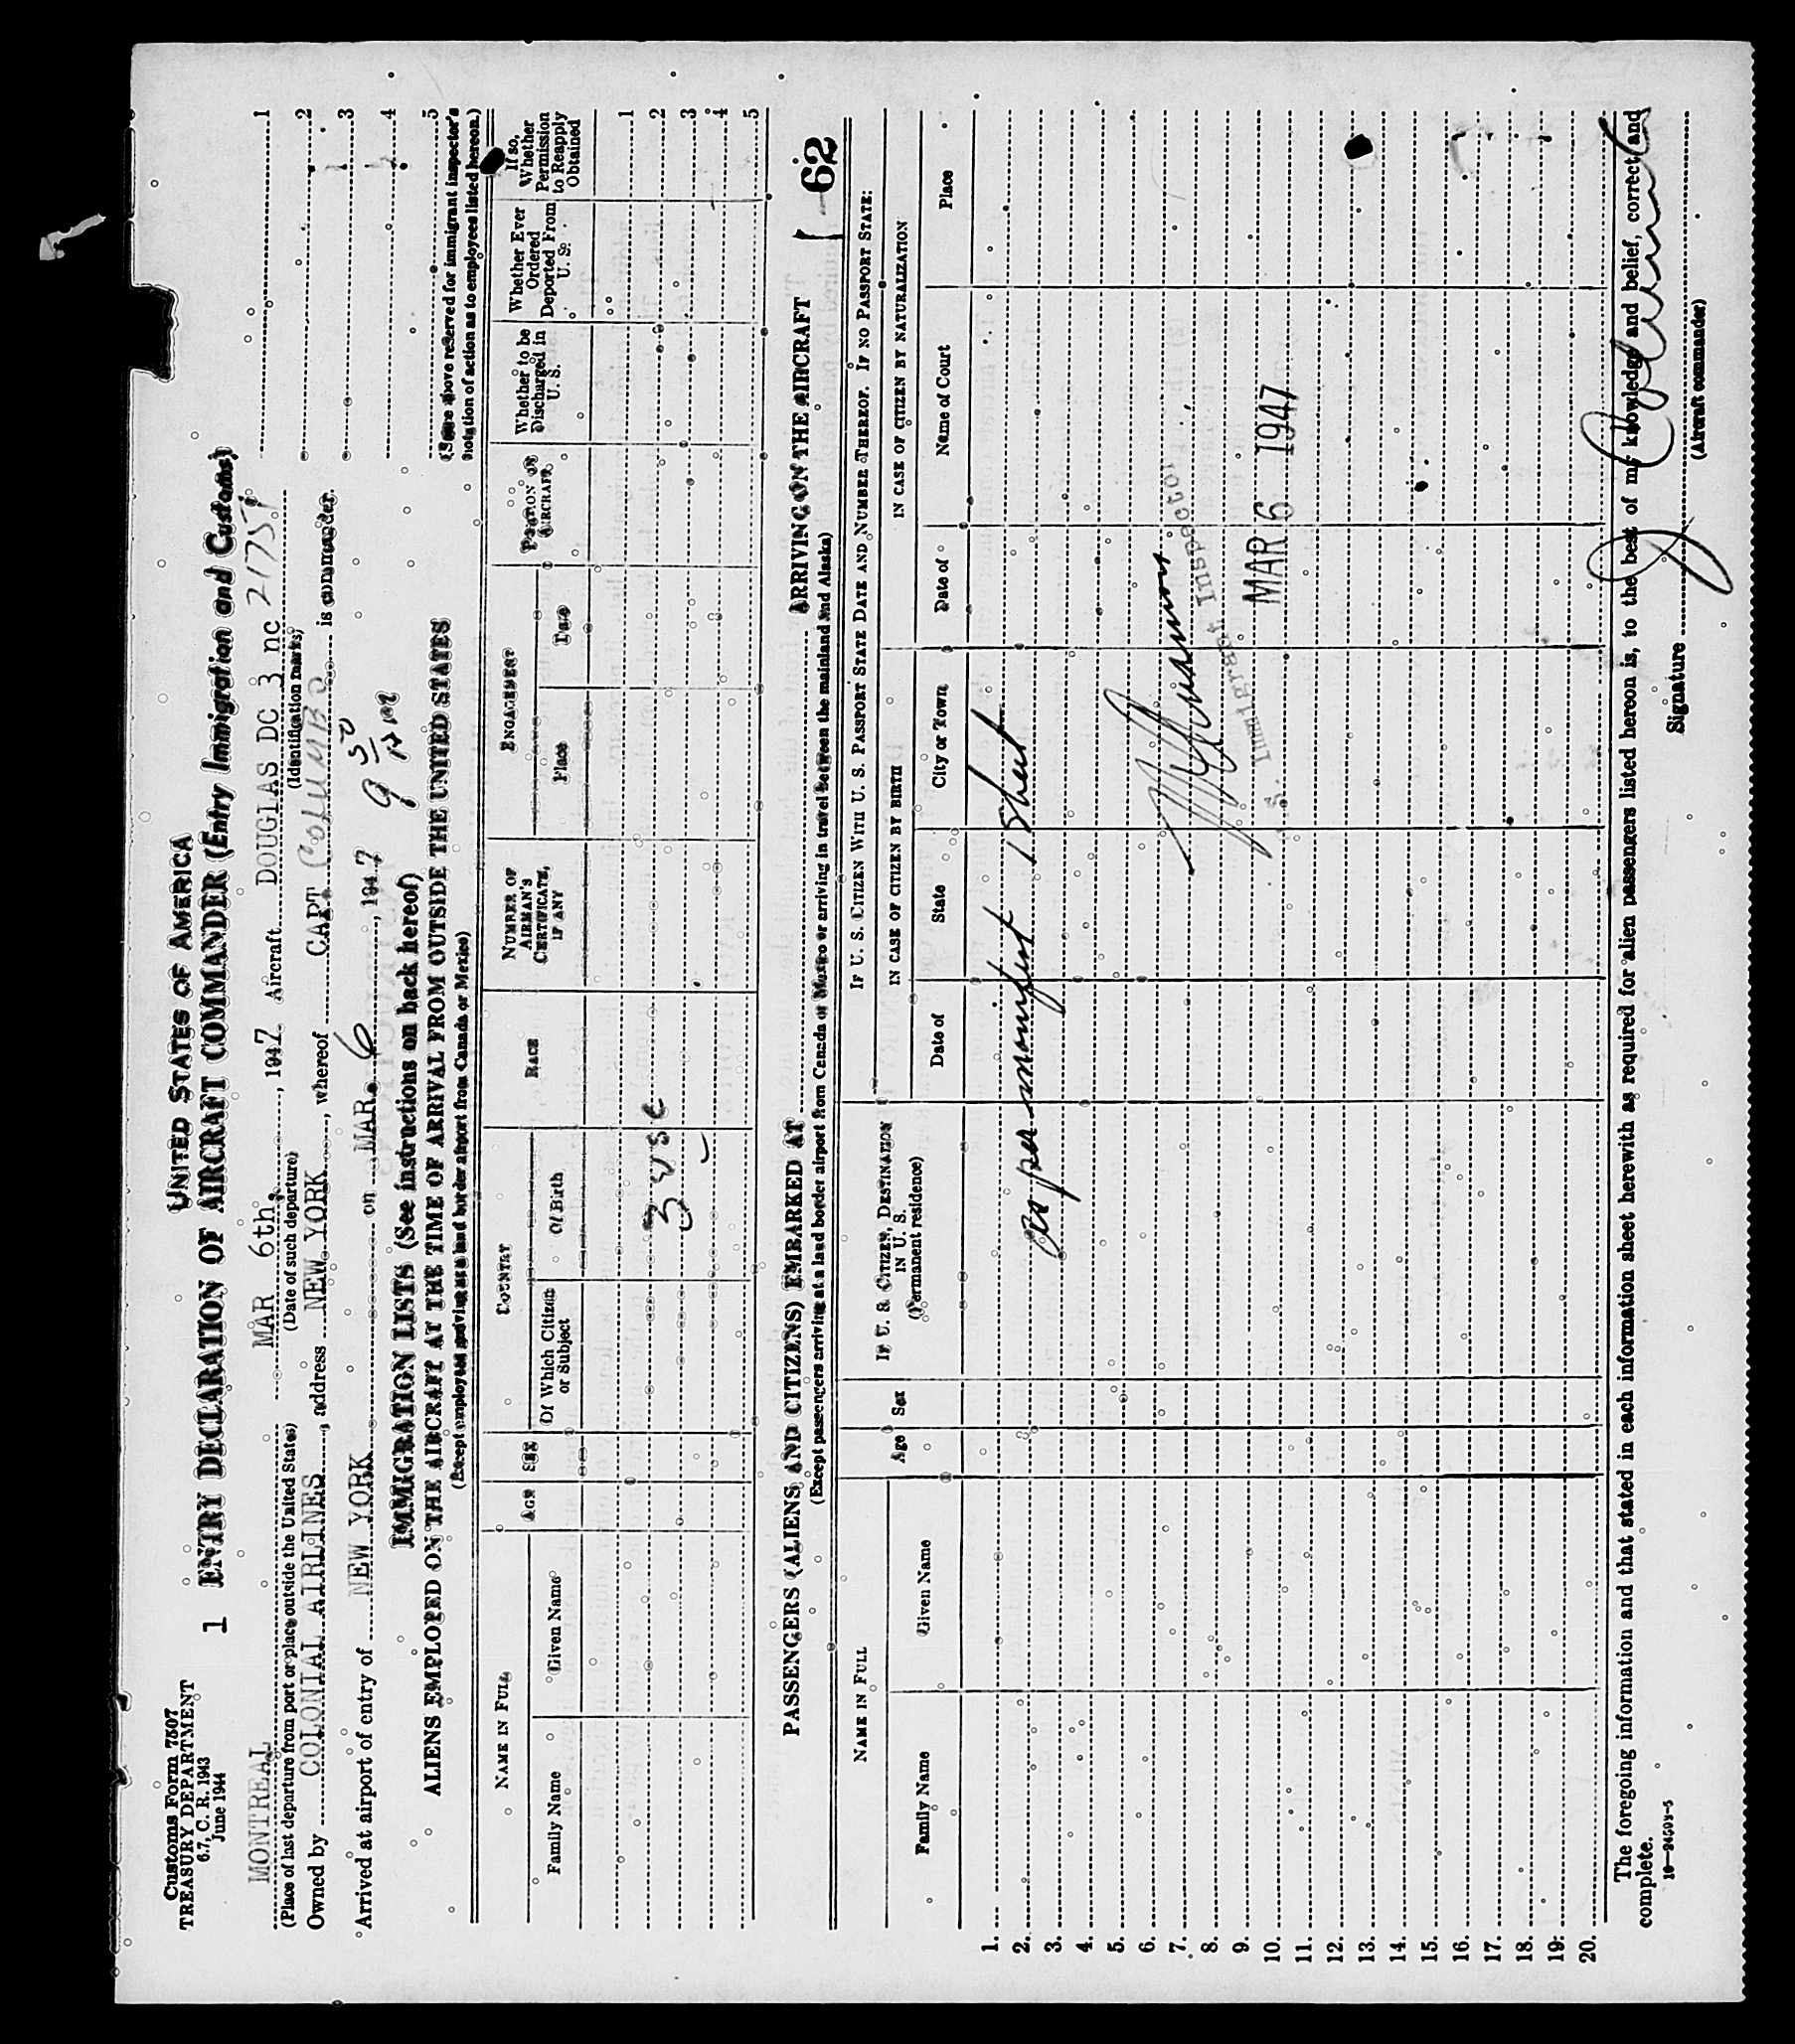 Customs Form 7507
TREASURY DEPARTMENT
6.7, C. R. 1943
June 1944
UNITED STATES OF AMERICA
1 ENTRY DECLARATION OF AIRCRAFT COMMANDER (Entry Immigration and Customs)
MONTREAL MAR 6th, , 1947 Aircraft DOUGLAS DC 3 nc 21757
(Place of last departure from port or place outside the United States) (Date of such departure) (Identification marks)
Owned by COLONIAL AIRLINES, address NEW YORK, whereof CAPT. COLUMBO is commander.
Arrived at airport of entry of NEW YORK on MAR. 6, 1947 9 50
1
2
3
4
5
(Space above reserved for immigrant inspector's
notation of action as to employees listed hereon.)
IMMIGRATION LISTS (See instructions on back hereof)
ALIENS EMPLOYED ON THE AIRCRAFT AT THE TIME OF ARRIVAL FROM OUTSIDE THE UNITED STATES
(Except employees arriving at a land border airport from Canada or Mexico)
NAME IN FULL
Family Name
Given Name
AGE
SEX
COUNTRY
Of Which Citizen or Subject
Of Birth
RACE
NUMBER OF AIRMAN'S CERTIFICATE, IF ANY
ENGAGEMENT
Place
Date
POSITION ON AIRCRAFT
Whether to be Discharged in U. S.
Whether Ever Ordered Deported From U. S.
If so, Whether Permission to Reapply Obtained
1
2
3 USC
3
4
5
PASSENGERS (ALIENS AND CITIZENS) EMBARKED AT ARRIVING ON THE AIRCRAFT 62
(Except passengers arriving at a land border airport from Canada or Mexico or arriving in travel between the mainland and Alaska)
NAME IN FULL
Family Name
Given Name
Age
Sex
IF U. S. CITIZEN, DESTINATION IN U. S.
(Permanent residence)
IF U. S. CITIZEN WITH U. S. PASSPORT STATE DATE AND NUMBER THEREOF. IF NO PASSPORT STATE:
IN CASE OF CITIZEN BY BIRTH
IN CASE OF CITIZEN BY NATURALIZATION
Date of
State
City or Town
Date of
Name of Court
Place
1.
2. as per manifest 1 sheet
3.
4.
5.
6.
7.
8. U. S. Immigrant Inspector
9.
10. MAR 6 1947
11.
12.
13.
14.
15.
16.
17.
18.
19.
20.
The foregoing information and that stated in each information sheet herewith as required for alien passengers listed hereon is, to the best of my knowledge and belief, correct and
complete.
16—24593-5
Signature
(Aircraft commander)